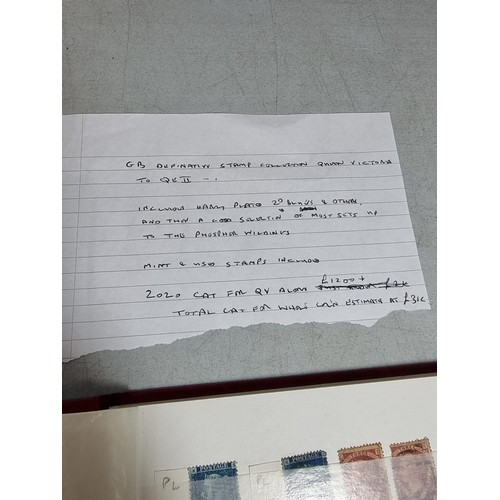 GB DEFINATIVE STAMP COLLECTION QUEEN VICTORIA
TO QE II -
INCLUDES MANY PLATED 2D BLUES & OTHERS,
AND THEN A GOOD SELECTION OF MOST SETS UP
TO THE PHOSPHER WILDINGS
MINT & USED STAMPS INCLUDED
£1200+
2020 CAT FOR QV ALONE
TOTAL CAT FOR WHOLE ESTIMATE AT £3K
PL
PL
POSTAGE
POSTAGE